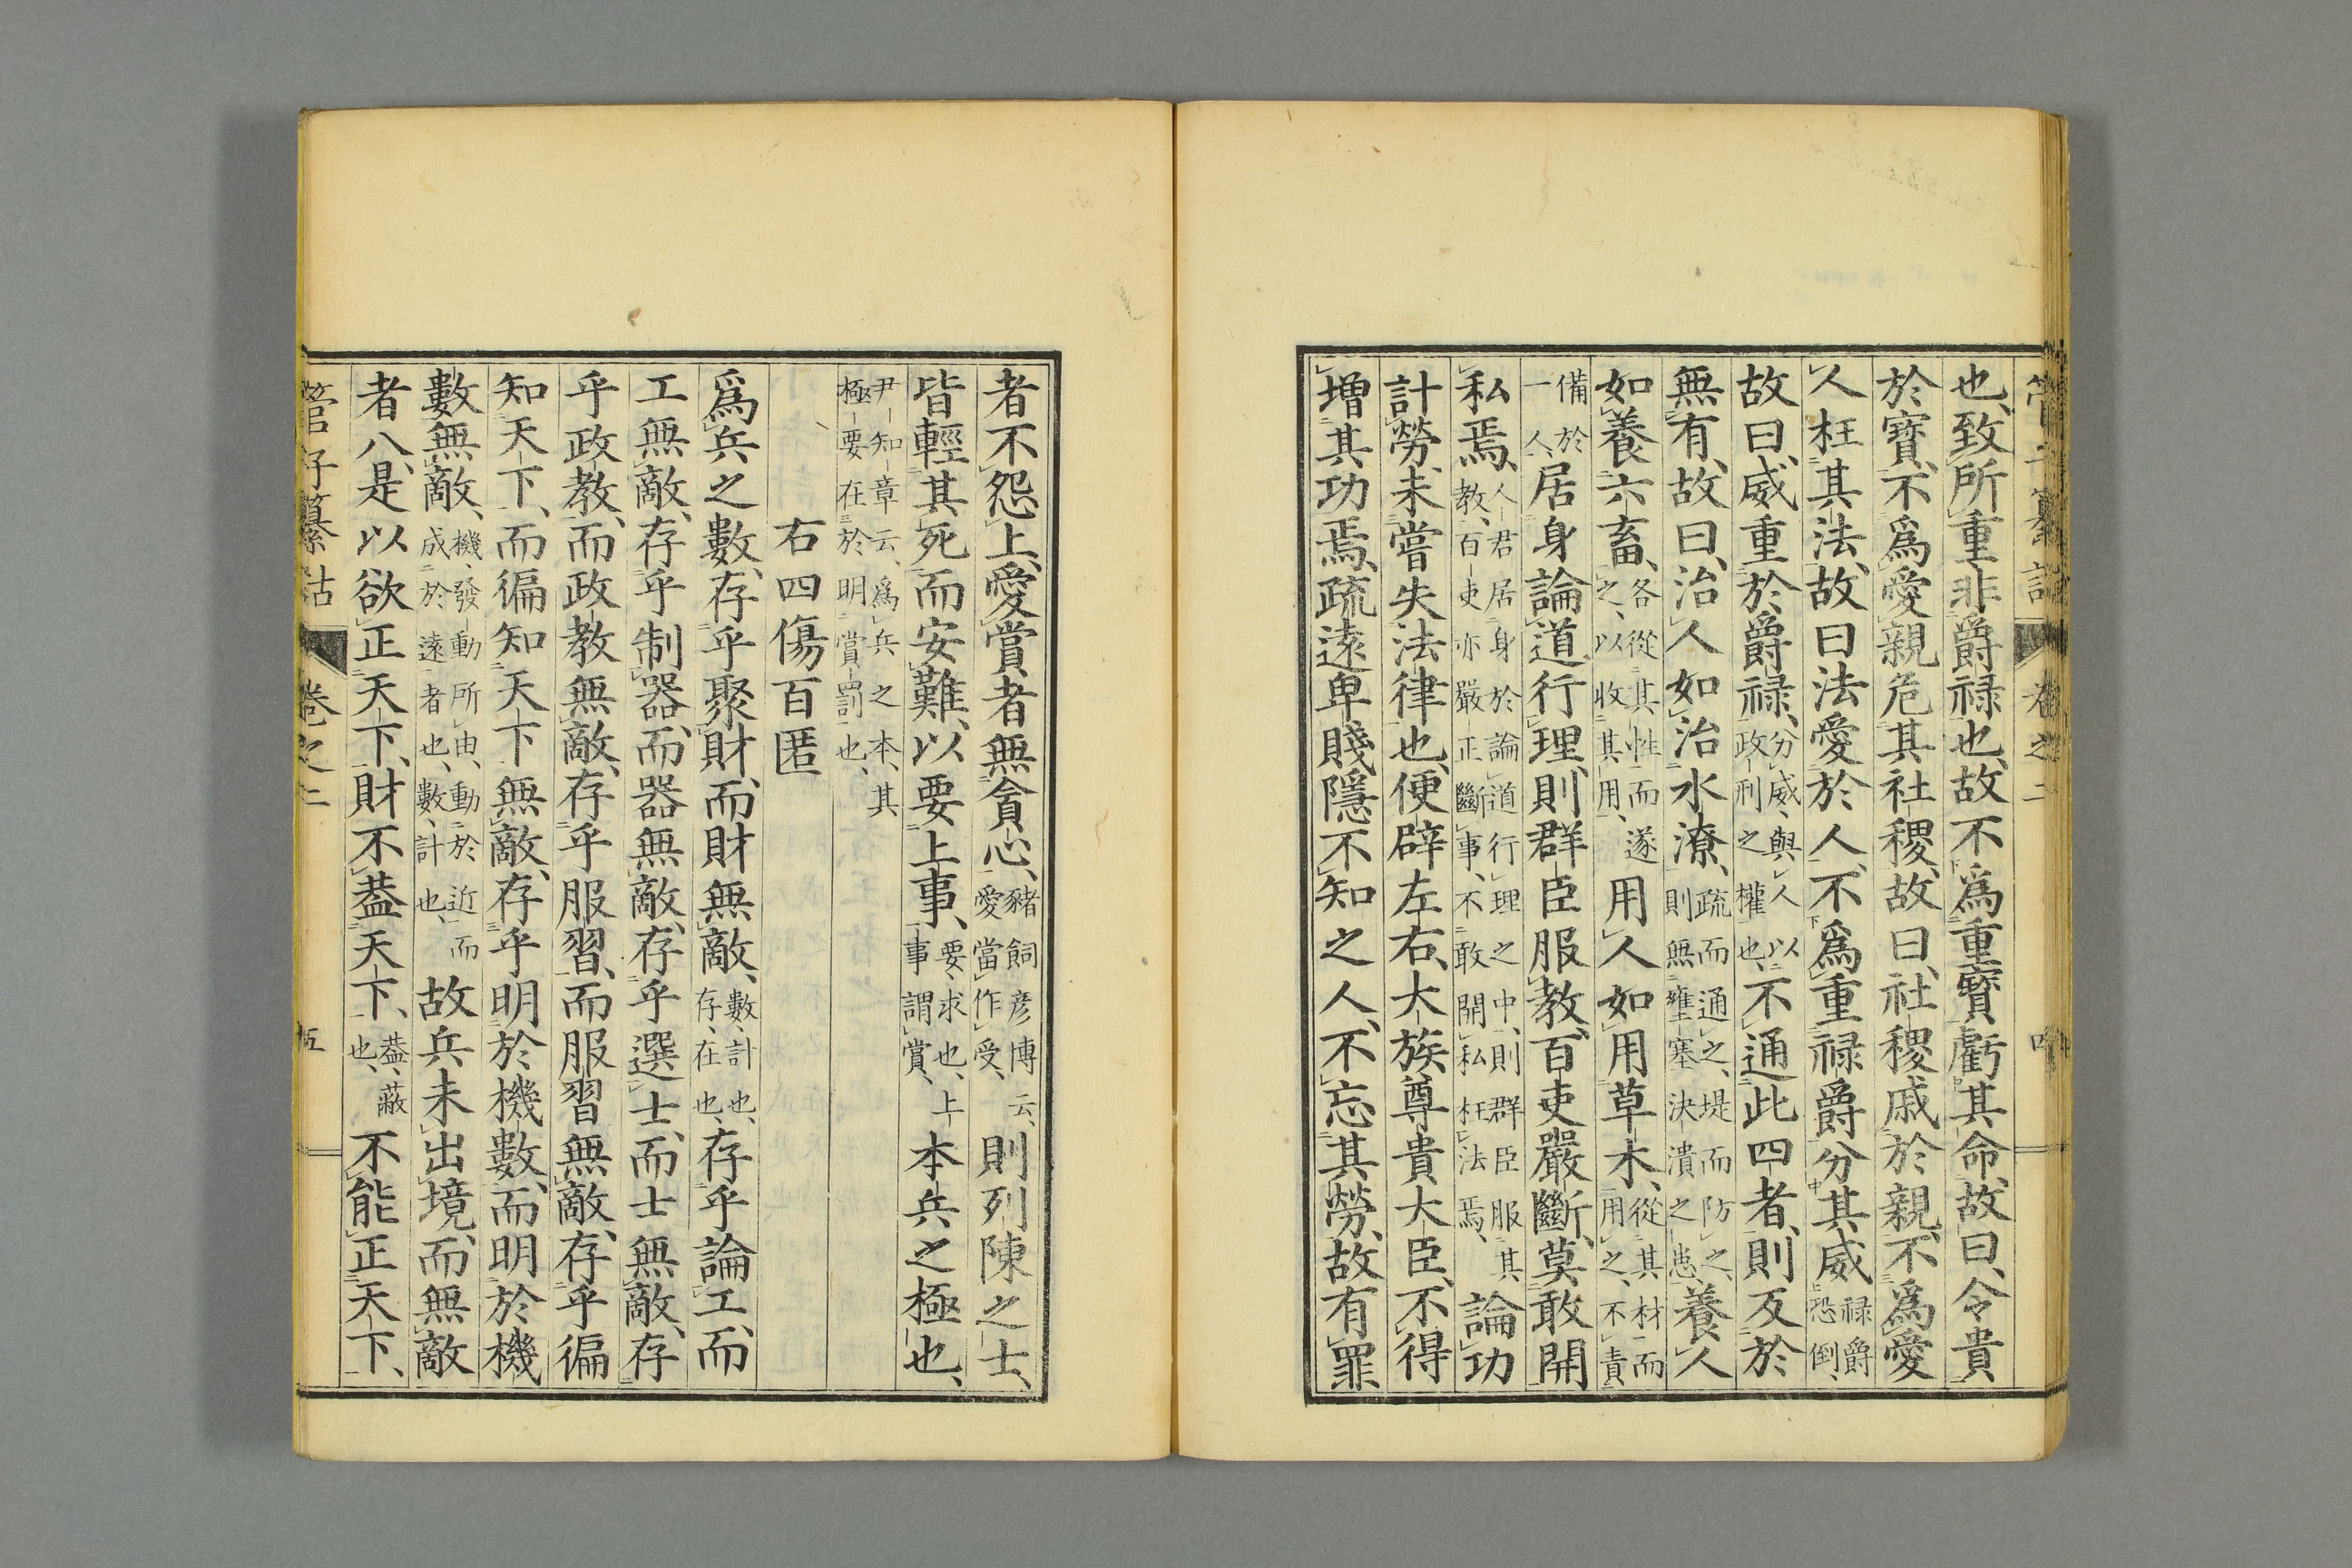 管子纂詁 卷之二 四
也、致所重、非爵祿也、故不爲重寶虧其命、故曰、令貴
於寶、不爲愛親危其社稷、故曰、社稷戚於親、不爲愛
人枉其法、故曰法愛於人、不爲重祿爵分其威、祿爵恐倒、
故曰、威重於爵祿、分威、與人以政刑之權也、不通此四者、則反於
無有、故曰、治人如治水潦、疏而通之、堤而防之、則無壅塞決潰之患、養人
如養六畜、各從其性而遂之、以收其用、用人如用草木、從其材而用之、不責
備於一人、居身論道行理、則群臣服教、百吏嚴斷、莫敢開
私焉、人君居身於論道行理之中、則群臣服其教、百吏亦嚴正斷事、不敢開私枉法焉、論功
計勞、未嘗失法律也、便辟左右、大族尊貴大臣、不得
增其功焉、疏遠卑賤隱不知之人、不忘其勞、故有罪
者不怨上、愛賞者無貪心、豬飼彥博云、愛當作受、則列陳之士、
皆輕其死而安難、以要上事、要、求也、上事謂賞、本兵之極也、
尹知章云、爲兵之本、其極要在於明賞罰也、
右四傷百匿
爲兵之數、存乎聚財、而財無敵、數、計也、存、在也、存乎論工、而
工無敵、存乎制器、而器無敵、存乎選士、而士無敵、存
乎政教、而政教無敵、存乎服習、而服習無敵、存乎徧
知天下、而徧知天下無敵、存乎明於機數、而明於機
數無敵、機、發動所由、動於近而成於遠者也、數、計也、故兵未出境、而無敵
者八、是以欲正天下、財不葢天下、葢、蔽也、不能正天下、
管子纂詁 卷之二 五